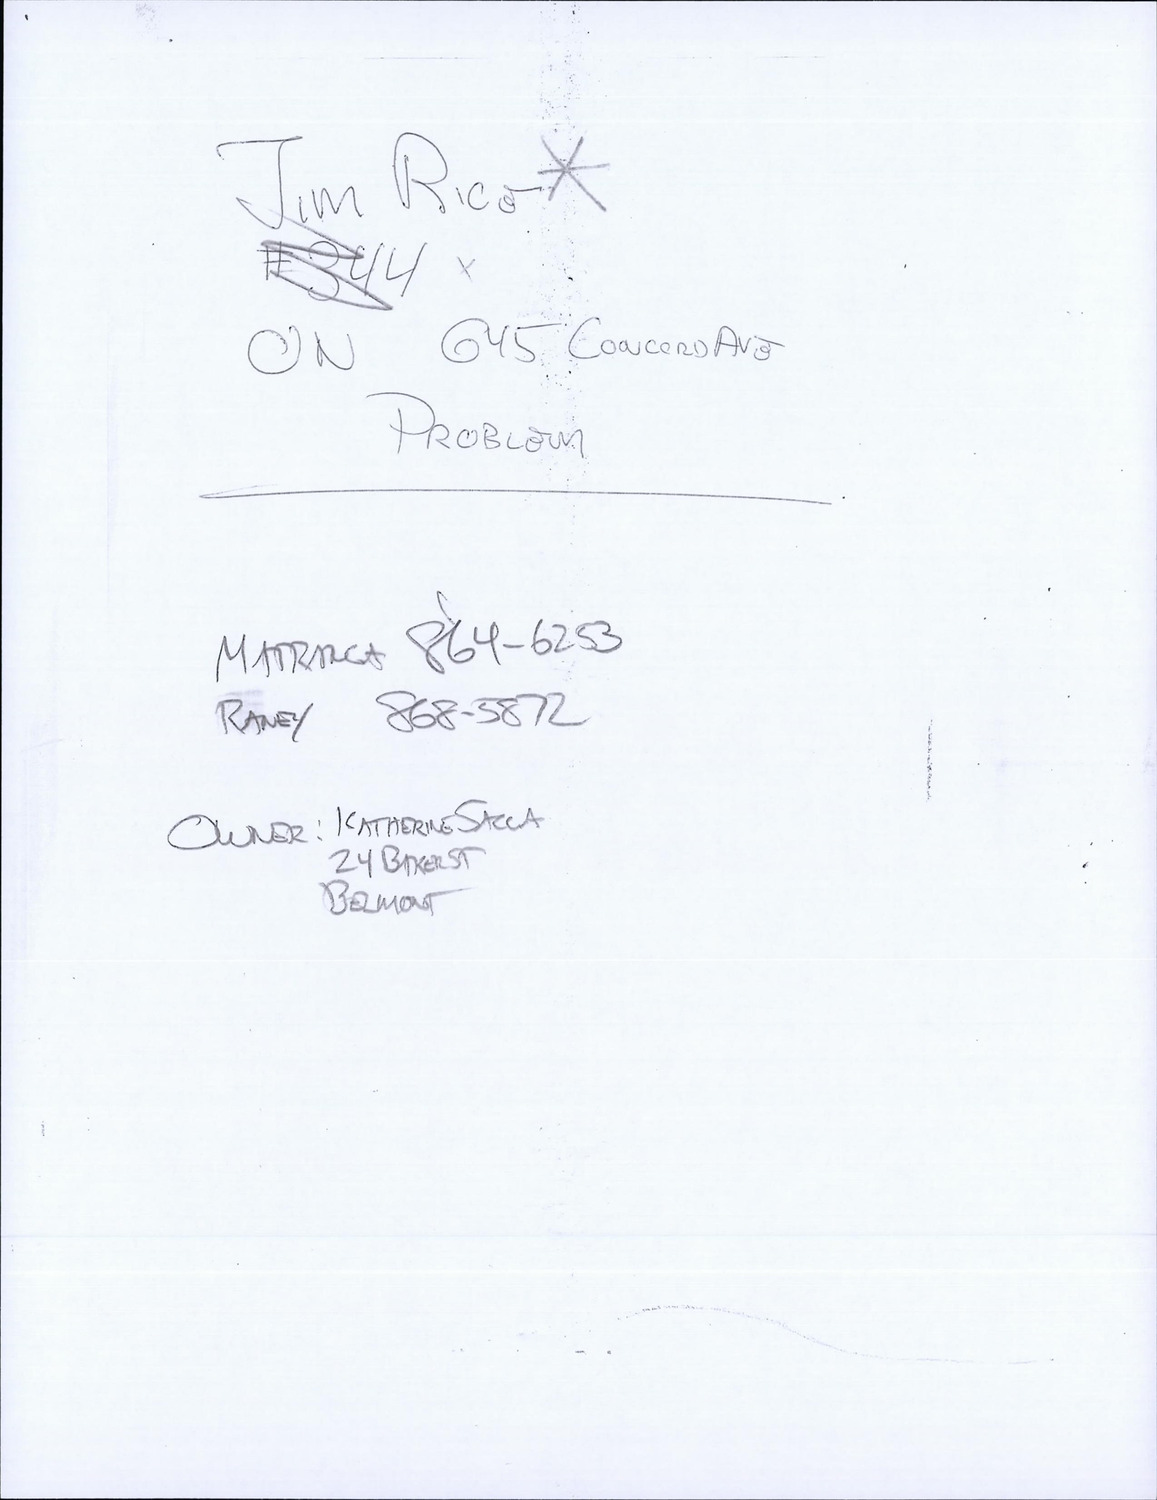 Jim Rice *
#344 x
ON 645 Concord Ave
Problem
864-6253
Raney 868-5872
Owner: Katherine Sacca
24 Baker St
Belmont